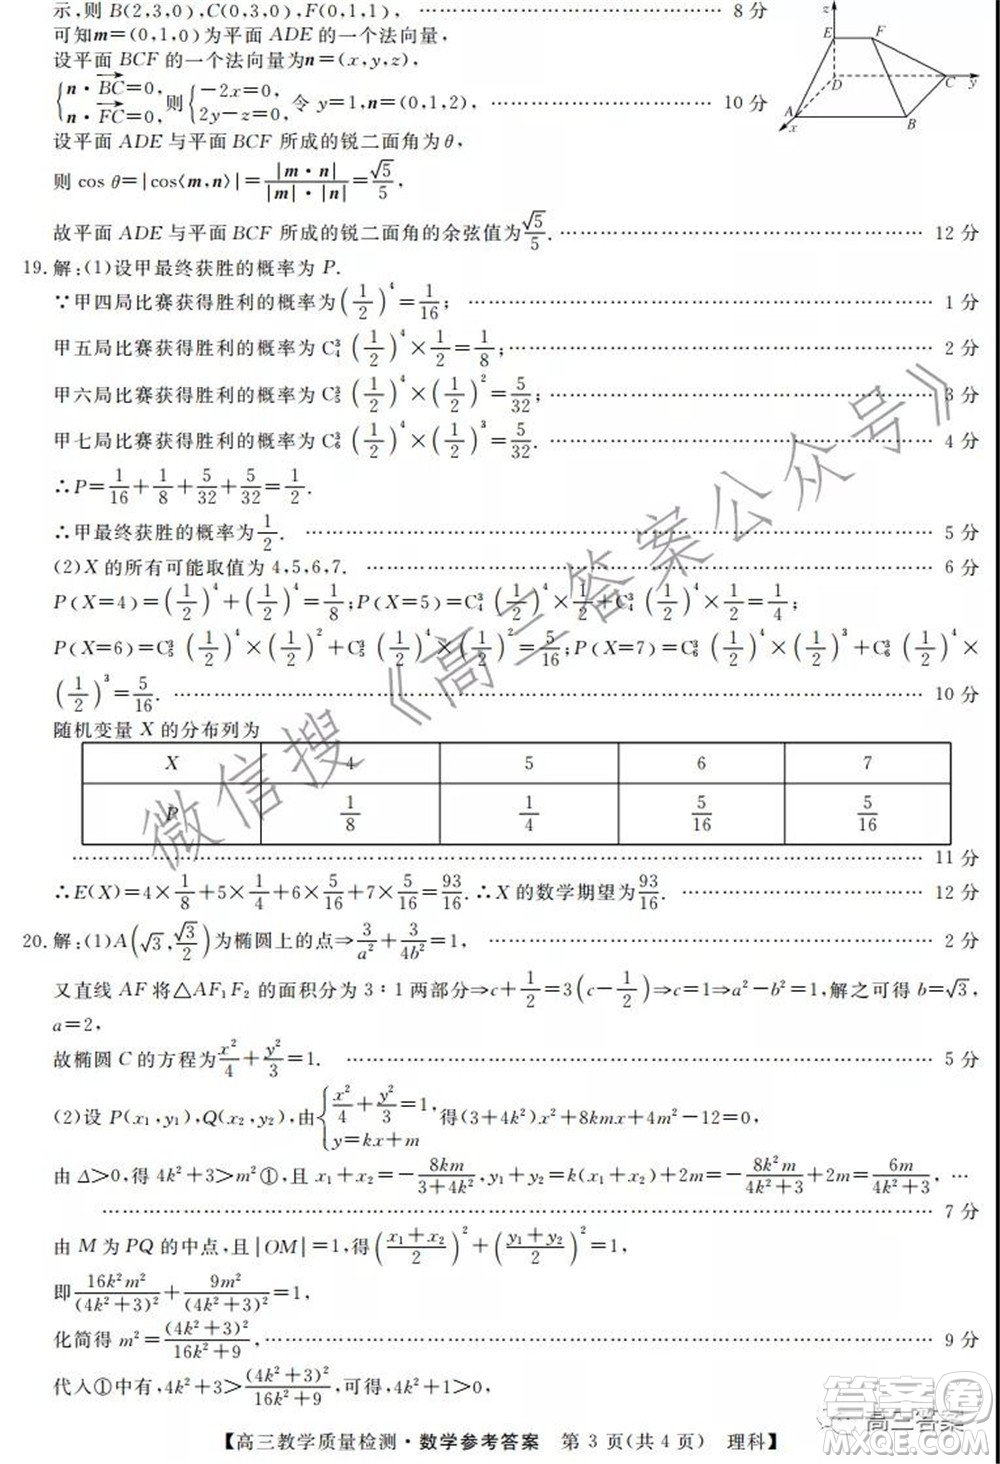 示,则 B(2,3,0),C(0,3,0),F(0,1,1), …………………………………… 8 分
可知m=(0,1,0)为平面 ADE 的一个法向量,
设平面 BCF 的一个法向量为n=(x,y,z),
{n·BC→=0, n·FC→=0, 则{−2x=0, 2y−z=0, 令 y=1,n=(0,1,2), …………………………… 10 分
设平面 ADE 与平面 BCF 所成的锐二面角为θ,
则 cos θ=|cos⟨m,n⟩|=|m·n|/(|m|·|n|)=√5/5,
故平面 ADE 与平面 BCF 所成的锐二面角的余弦值为√5/5. …………………………… 12 分
z
E
F
D
C
y
A
x
B
19. 解:(1)设甲最终获胜的概率为 P.
∵甲四局比赛获得胜利的概率为(1/2)⁴=1/16; …………………………… 1 分
甲五局比赛获得胜利的概率为 C₄³(1/2)⁴×1/2=1/8; …………………………… 2 分
甲六局比赛获得胜利的概率为 C₅³(1/2)⁴×(1/2)²=5/32; …………………………… 3 分
甲七局比赛获得胜利的概率为 C₆³(1/2)⁴×(1/2)³=5/32. …………………………… 4 分
∴P=1/16+1/8+5/32+5/32=1/2.
∴甲最终获胜的概率为1/2. …………………………… 5 分
(2)X 的所有可能取值为 4,5,6,7. …………………………… 6 分
P(X=4)=(1/2)⁴+(1/2)⁴=1/8;P(X=5)=C₄³(1/2)⁴×1/2+C₄³(1/2)⁴×1/2=1/4;
P(X=6)=C₅³(1/2)⁴×(1/2)²+C₅³(1/2)⁴×(1/2)²=5/16;P(X=7)=C₆³(1/2)⁴×(1/2)³+C₆³(1/2)⁴×
(1/2)³=5/16. …………………………… 10 分
随机变量 X 的分布列为
X 4 5 6 7
P 1/8 1/4 5/16 5/16
…………………………… 11 分
∴E(X)=4×1/8+5×1/4+6×5/16+7×5/16=93/16.∴X 的数学期望为93/16. …………………………… 12 分
20. 解:(1)A(√3,√3/2)为椭圆上的点⇒3/a²+3/4b²=1, …………………………… 2 分
又直线 AF 将△AF₁F₂ 的面积分为 3∶1 两部分⇒c+1/2=3(c−1/2)⇒c=1⇒a²−b²=1,解之可得 b=√3,
a=2,
故椭圆 C 的方程为x²/4+y²/3=1. …………………………… 5 分
(2)设 P(x₁,y₁),Q(x₂,y₂),由{x²/4+y²/3=1, y=kx+m 得(3+4k²)x²+8kmx+4m²−12=0,
由 Δ>0,得 4k²+3>m²①,且 x₁+x₂=−8km/(3+4k²),y₁+y₂=k(x₁+x₂)+2m=−8k²m/(4k²+3)+2m=6m/(4k²+3), …
…………………………… 7 分
由 M 为 PQ 的中点,且|OM|=1,得((x₁+x₂)/2)²+((y₁+y₂)/2)²=1,
即16k²m²/(4k²+3)²+9m²/(4k²+3)²=1,
化简得 m²=(4k²+3)²/(16k²+9), …………………………… 9 分
代入①中有,4k²+3>(4k²+3)²/(16k²+9),可得,4k²+3<16k²+9,
【高三教学质量检测·数学参考答案 第 3 页(共 4 页) 理科】
微信搜《高三答案公众号》
高三答案
答案圈
MXQE.COM